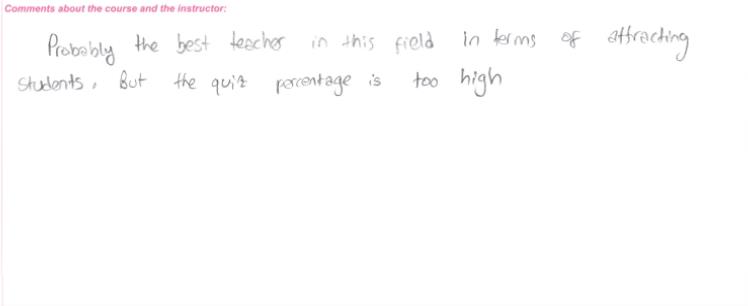 Comments about the course and the instructor:
Probably the best teacher in this field in terms of attracting
students, But the quiz percentage is too high